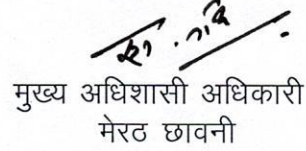 मुख्य अधिशासी अधिकारी
मेरठ छावनी